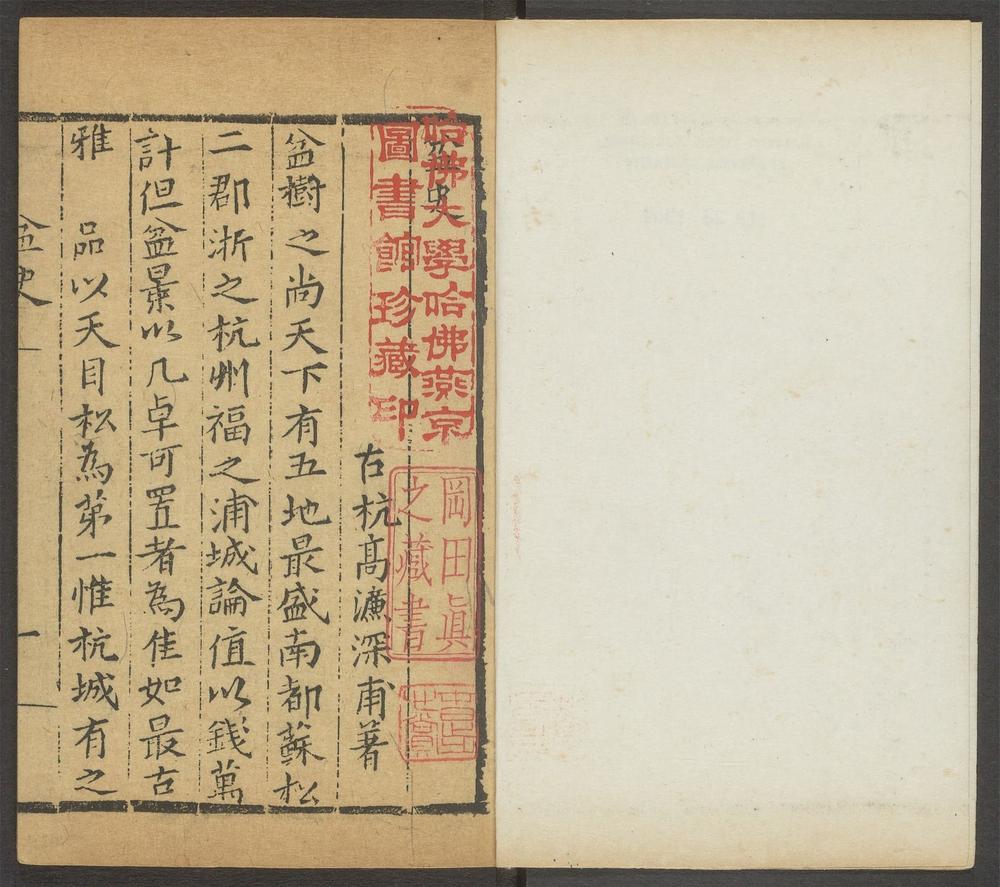 盆史
哈佛大學哈佛燕京
圖書館珍藏印
岡田眞
之藏書
古杭高濂深甫著
盆樹之尚天下有五地最盛南都蘇松
二郡浙之杭州福之浦城論值以錢萬
計但盆景以几卓可置者為佳如最古
雅 品以天目松為第一惟杭城有之
盆史
一